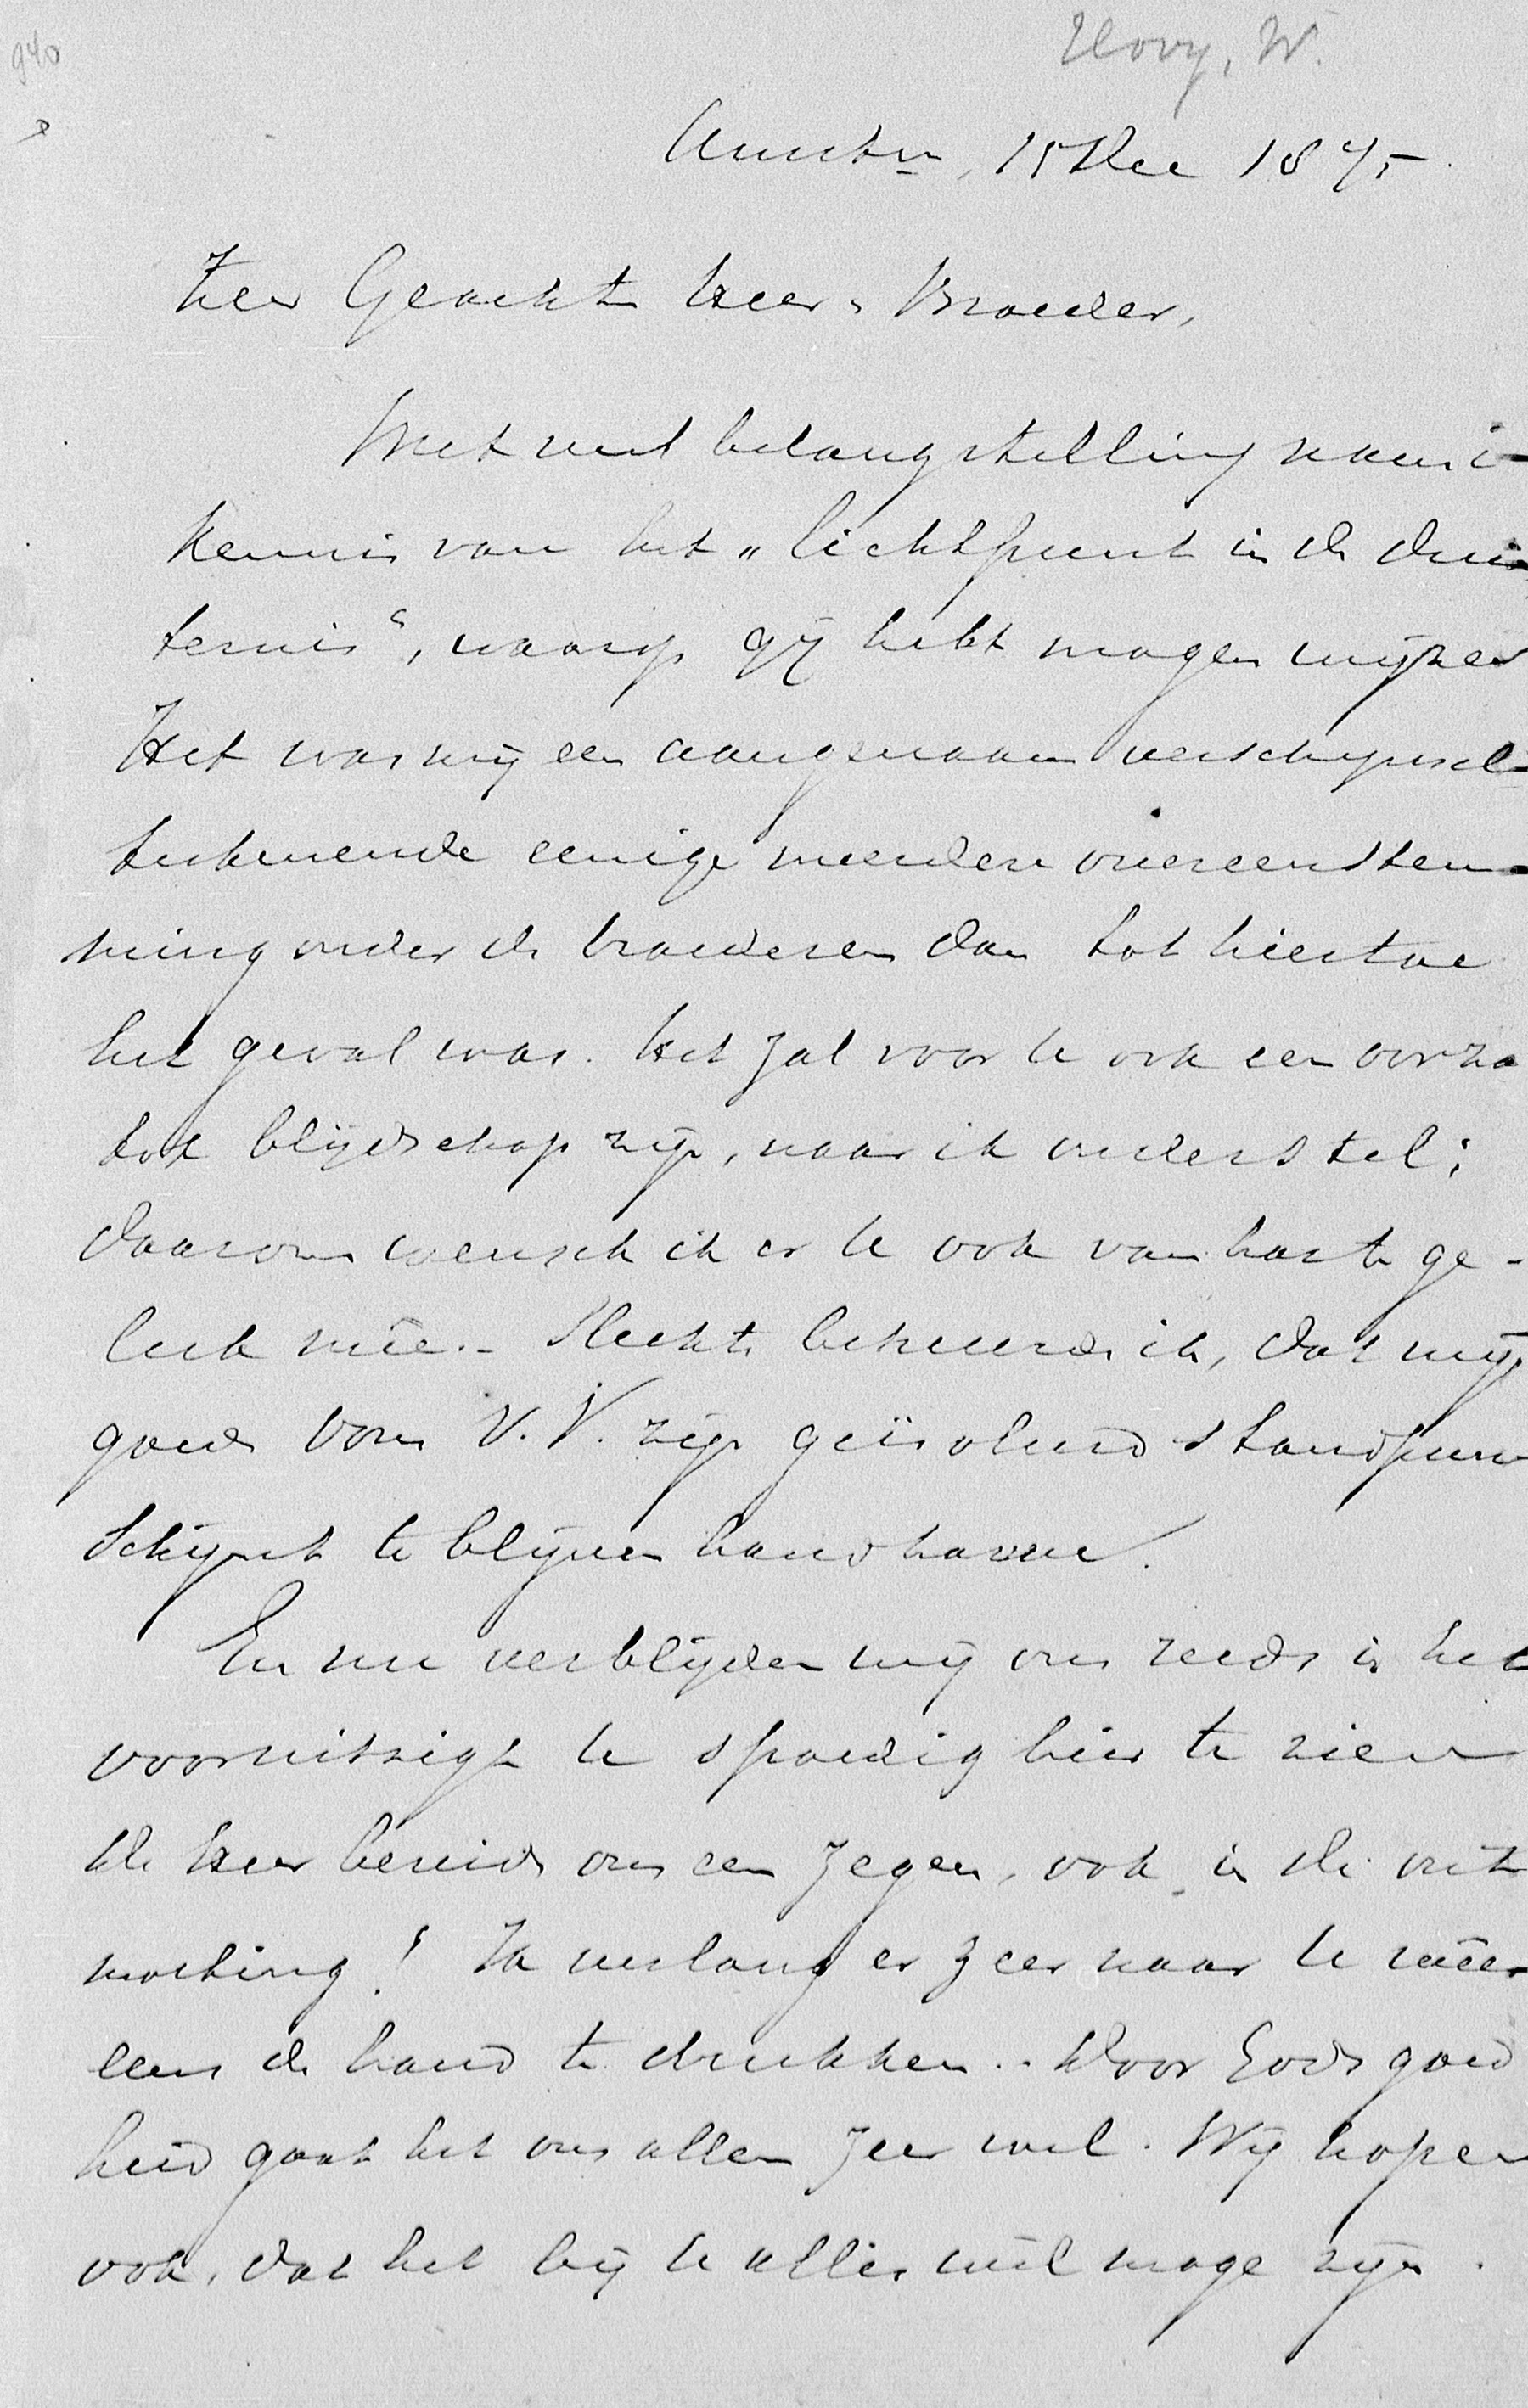 940
Hovy, W.
Amstm, 15 Dec 1875
Zeer Geachte Heer & Broeder,
Met veel belangstelling nam i
kennis van het „lichtpunt in de duis
ternis“, waarop gij hebt mogen wijzen
Het was mij een aangenaam verschijnsel
teekenende eenige meerdere overeenstem-
ming onder de broederen dan tot hiertoe
het geval was. Het zal voor U ook een oorza
tot blijdschap zijn, naar ik onderstel;
daarom wensch ik er U ook van harte ge-
luk mêe. - Slechts betreurde ik, dat mijn
goede oom V. V. zijn geïsoleerd standpun
schijnt te blijven handhaven.
En nu verblijden wij ons reeds in het
vooruitzigt U spoedig hier te zien
De Heer bereide ons een zegen, ook in die ont
moeting! Ik verlang er zeer naar U wêer
eens de hand te drukken. - Door Gods goed
heid gaat het ons allen zeer wel. Wij hopen
ook, dat het bij U alles wél moge zijn.